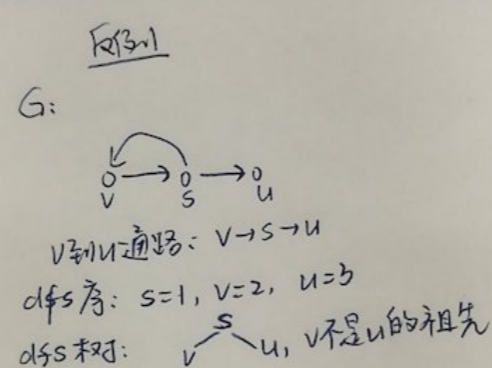 反例
G:
v s u
v到u通路: v→s→u
dfs序: s=1, v=2, u=3
s
dfs树: v u, v不是u的祖先